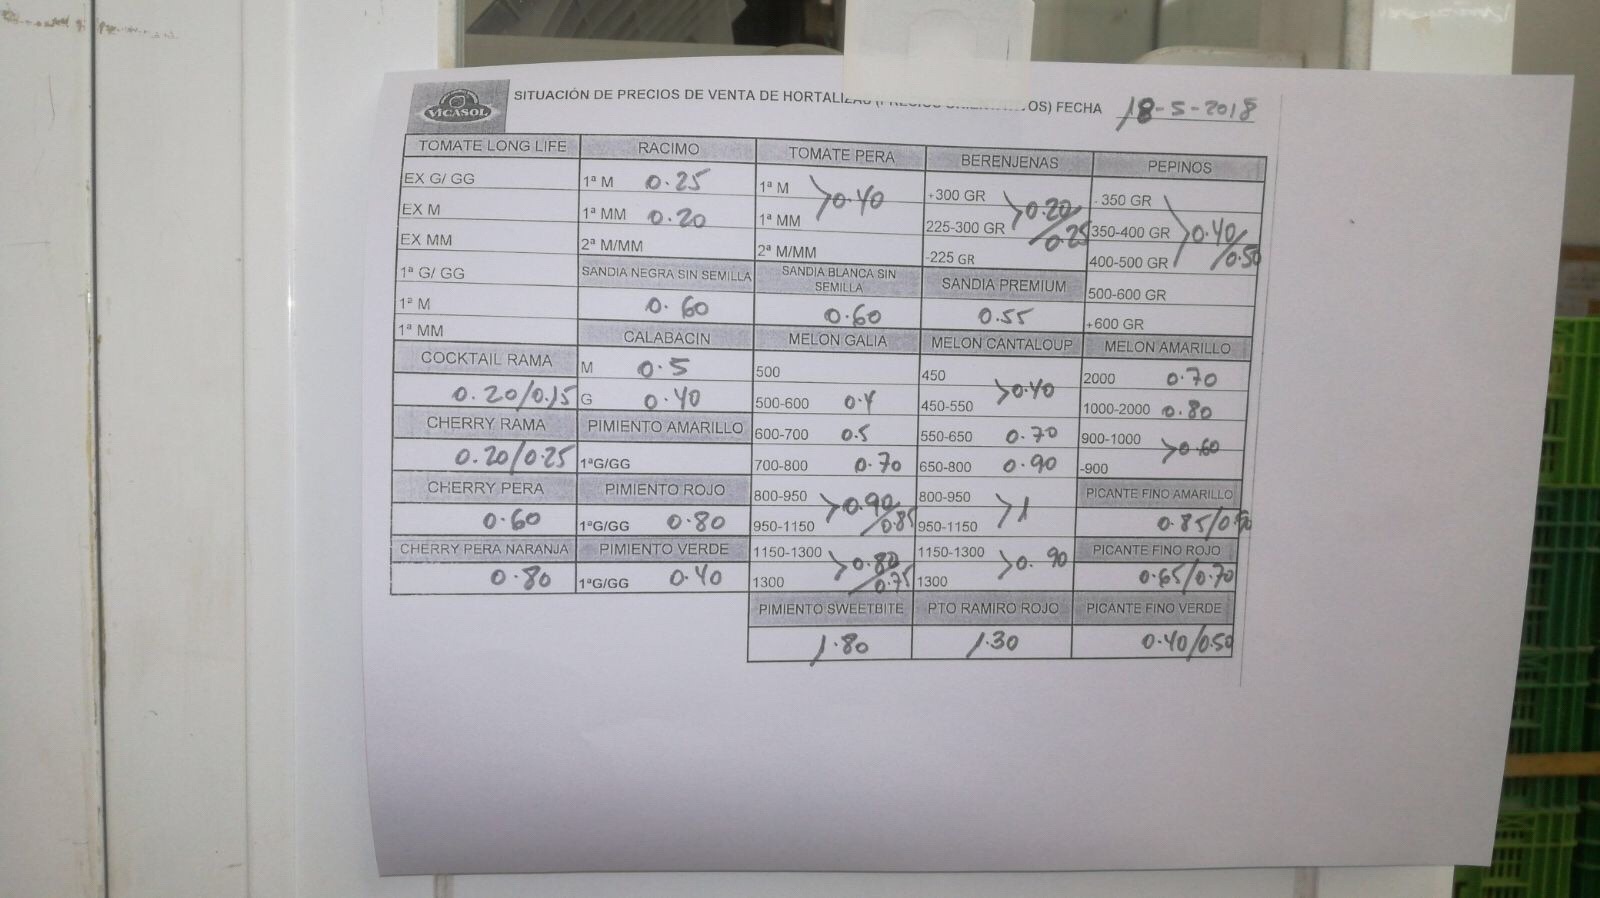 VICASOL
SITUACIÓN DE PRECIOS DE VENTA DE HORTALIZAS FECHA 18-5-2018
TOMATE LONG LIFE
EX G/ GG
EX M
EX MM
1ª G/ GG
1ª M
1ª MM
COCKTAIL RAMA
0.20/0.15
CHERRY RAMA
0.20/0.25
CHERRY PERA
0.60
CHERRY PERA NARANJA
0.80
RACIMO
1ª M 0.25
1ª MM 0.20
2ª M/MM
SANDIA NEGRA SIN SEMILLA
0.60
CALABACIN
M 0.5
G 0.40
PIMIENTO AMARILLO
1ªG/GG
PIMIENTO ROJO
1ªG/GG 0.80
PIMIENTO VERDE
1ªG/GG 0.40
TOMATE PERA
1ª M
>0.40
1ª MM
2ª M/MM
SANDIA BLANCA SIN
SEMILLA
0.60
MELON GALIA
500
500-600 0.4
600-700 0.5
700-800 0.70
800-950
>0.90/0.85
950-1150
1150-1300
>0.80/0.75
1300
PIMIENTO SWEETBITE
1.80
BERENJENAS
+300 GR
>0.20/0.25
225-300 GR
-225 GR
SANDIA PREMIUM
0.55
MELON CANTALOUP
450
>0.40
450-550
550-650 0.70
650-800 0.90
800-950
>1
950-1150
1150-1300
>0.90
1300
PTO RAMIRO ROJO
1.30
PEPINOS
- 350 GR
350-400 GR >0.40/0.50
400-500 GR
500-600 GR
+600 GR
MELON AMARILLO
2000 0.70
1000-2000 0.80
900-1000
>0.60
-900
PICANTE FINO AMARILLO
0.85/
PICANTE FINO ROJO
0.65/0.70
PICANTE FINO VERDE
0.40/0.50